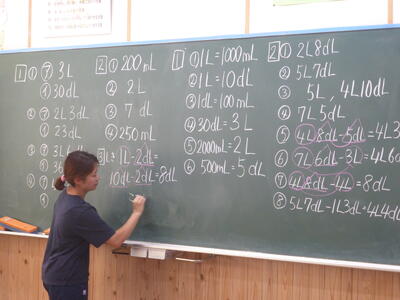 1 ① ㋐ 3L
㋑ 30dL
② ㋐ 2L3dL
㋑ 23dL
③ ㋐
④
2 ① 200mL
② 2L
③ 7dL
④ 250mL
1L-2dL=
10dL-2dL=8dL
1 ① 1L=1000mL
② 1L=10dL
③ 1dL=100mL
④ 30dL=3L
⑤ 2000mL=2L
⑥ 500mL=5dL
2 ① 2L8dL
② 5L7dL
③ 5L、4L10dL
④ 7L5dL
⑤ 4L8dL-5dL=4L3
⑥ 7L6dL-3L=4L6
⑦ 4L8dL-4L=8dL
⑧ 5L7dL-1L3dL=4L4dL